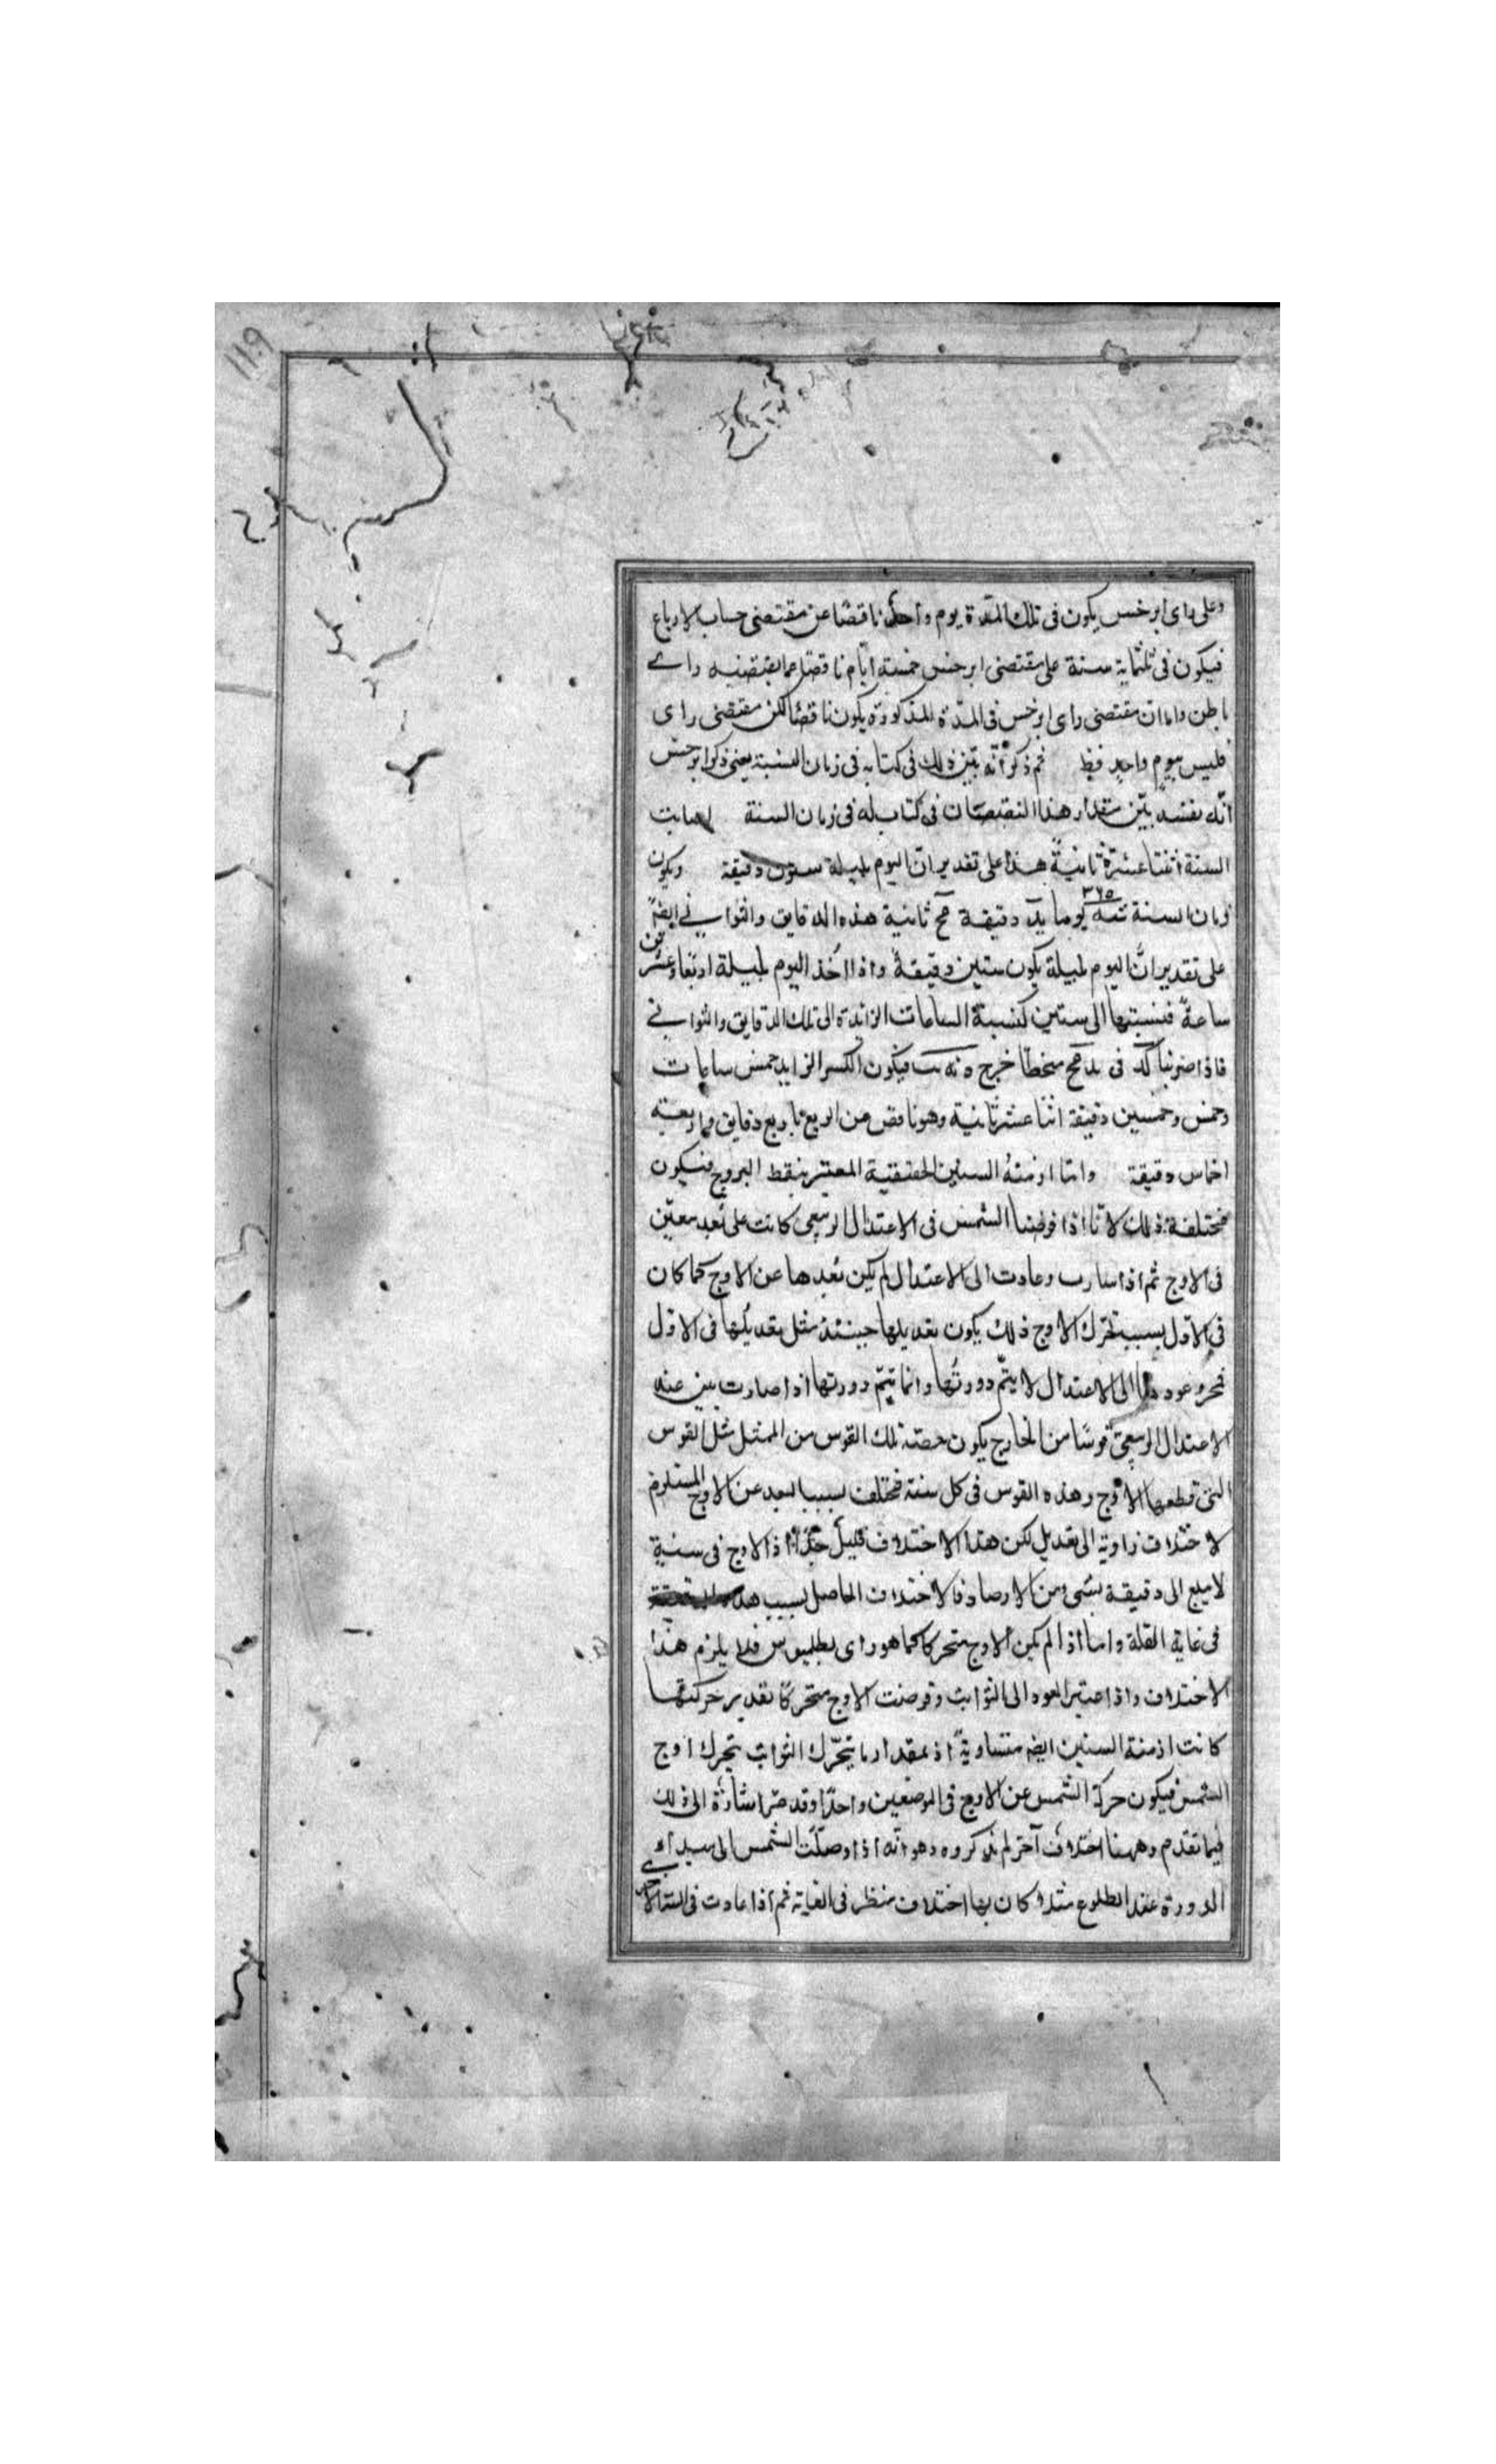 ١١٩
وعلى راى ابرخس يكون فى تلك المدّة يوم واحد ناقصًا عن مقتضى حساب الارباع
فيكون فى ثلثماية سنة على مقتضى ابرخس خمسة ايّام ناقصا عما يقتضيه راى
واما ان مقتضى راى ابرخس فى المدّة المذكورة يكون ناقصًا لكن مقتضى راى
فليس بيوم واحد فقط ثم ذكر انّه بيّن ذلك فى كتابه فى زمان السنة يعنى ذكر ابرخس
انّه بنفسه بيّن مقدار هذا النقصان فى كتاب له فى زمان السنة
السنة اثنتا عشرة ثانيةً هذا على تقدير انّ اليوم بليلة ستون دقيقة ويكون
٣٦٥
زمان السنة شسه يوما يد دقيقة مح ثانية هذه الدقايق والثوانى ايضًا
على تقدير انّ اليوم بليلة يكون ستين دقيقةً واذا اُخذ اليوم بليلة اربعا وعشرين
ساعةً فنسبتها الى ستين كنسبة الساعات الزايدة الى تلك الدقايق والثوانى
فاذا ضربنا كد فى يد مح منحطا خرج ه نه يب فيكون الكسر الزايد خمس ساعات
وخمس وخمسين دقيقة اثنا عشر ثانية وهو ناقص من الربع باربع دقايق واربعة
اخماس دقيقة وامّا ازمنةُ السنين الحقيقية المعتبر بنقط البروج فيكون
مختلفة ذلك لانّا اذا فرضنا الشمس فى الاعتدال الربيعى كانت على بُعد معيّن
فى الاوج ثم اذا سارت وعادت الى الاعتدال لم يكن بُعدها عن الاوج كما كان
فى الاوّل بسبب تحرّك الاوج ذلك يكون تعديلها حينئذ مثل تعديلها فى الاول
فبمجرد عودها الى الاعتدال لا يتمّ دورتُها وانما تتمّ دورتها اذا صارت بين عند
الاعتدال الربيعىّ قوسًا من الخارج يكون حصّة تلك القوس من الممثل مثل القوس
التى قطعها الاوج وهذه القوس فى كل سنة مختلف بسبب البعد عن الاوج المستلزم
لاختلاف زاوية التعديل لكن هذا الاختلاف قليلٌ جدًّا اذ الاوج فى سنةٍ
لا يبلغ الى دقيقة بشىء من الارصاد فالاختلاف الحاصل بسبب هذه
فى غاية القلة واما اذا لم يكن الاوج متحركا كما هو راى بطلميوس فلا يلزم هذا
الاختلاف واذا اعتبر العود الى الثوابت وفرضت الاوج متحركًا بقدر حركتها
كانت ازمنة السنين ايضا متساويةً اذ بمقدار ما يتحرّك الثوابت يتحرك اوج
الشمس فيكون حركة الشمس عن الاوج فى الموضعين واحدًا وقد مرّ اشارةٌ الى ذلك
فيما تقدم وههنا اختلافٌ آخر لم يذكروه وهو انّه اذا وصلَت الشمس الى مبداء
الدورة عند الطلوع مثلا كان بها اختلاف منظر فى الغاية ثم اذا عادت فى السنة